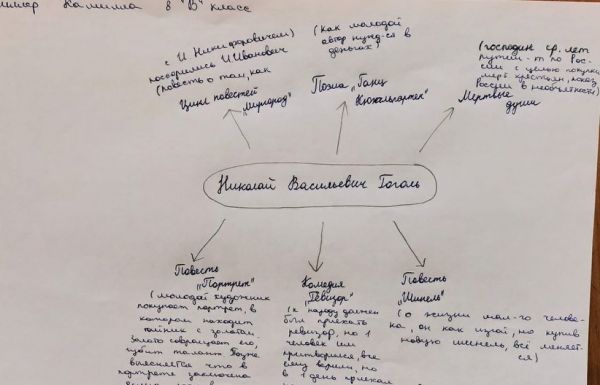 Миллер Камилла 8 "В" класс
с И. Никифоровичем)
поссорились И. Иванович
(повесть о том, как
Цикл повестей
„Миргород"
(как молодой
автор нужд-ся в
деньгах)
Поэма „Ганц
Кюхельгартен"
(господин ср. лет
путеш-т по Рос-
сии с целью покупки
мёрт. крестьян, показ.
России в необъятности)
Мертвые
души
Николай Васильевич Гоголь
Повесть
„Портрет"
(молодой художник
покупает портрет, в
котором находит
тайник с золотом.
Золото совращает его,
губит талант. Позже
выясняется что в
портрете заключена
Комедия
„Ревизор"
(к народу должен
был приехать
ревизор, но 1
человек им
притворился, все
ему верили, но
в 1 день приехал
Повесть
„Шинель"
(о жизни мал-го челове-
ка, он как изгой, но купив
новую шинель, всё меняет-
ся)